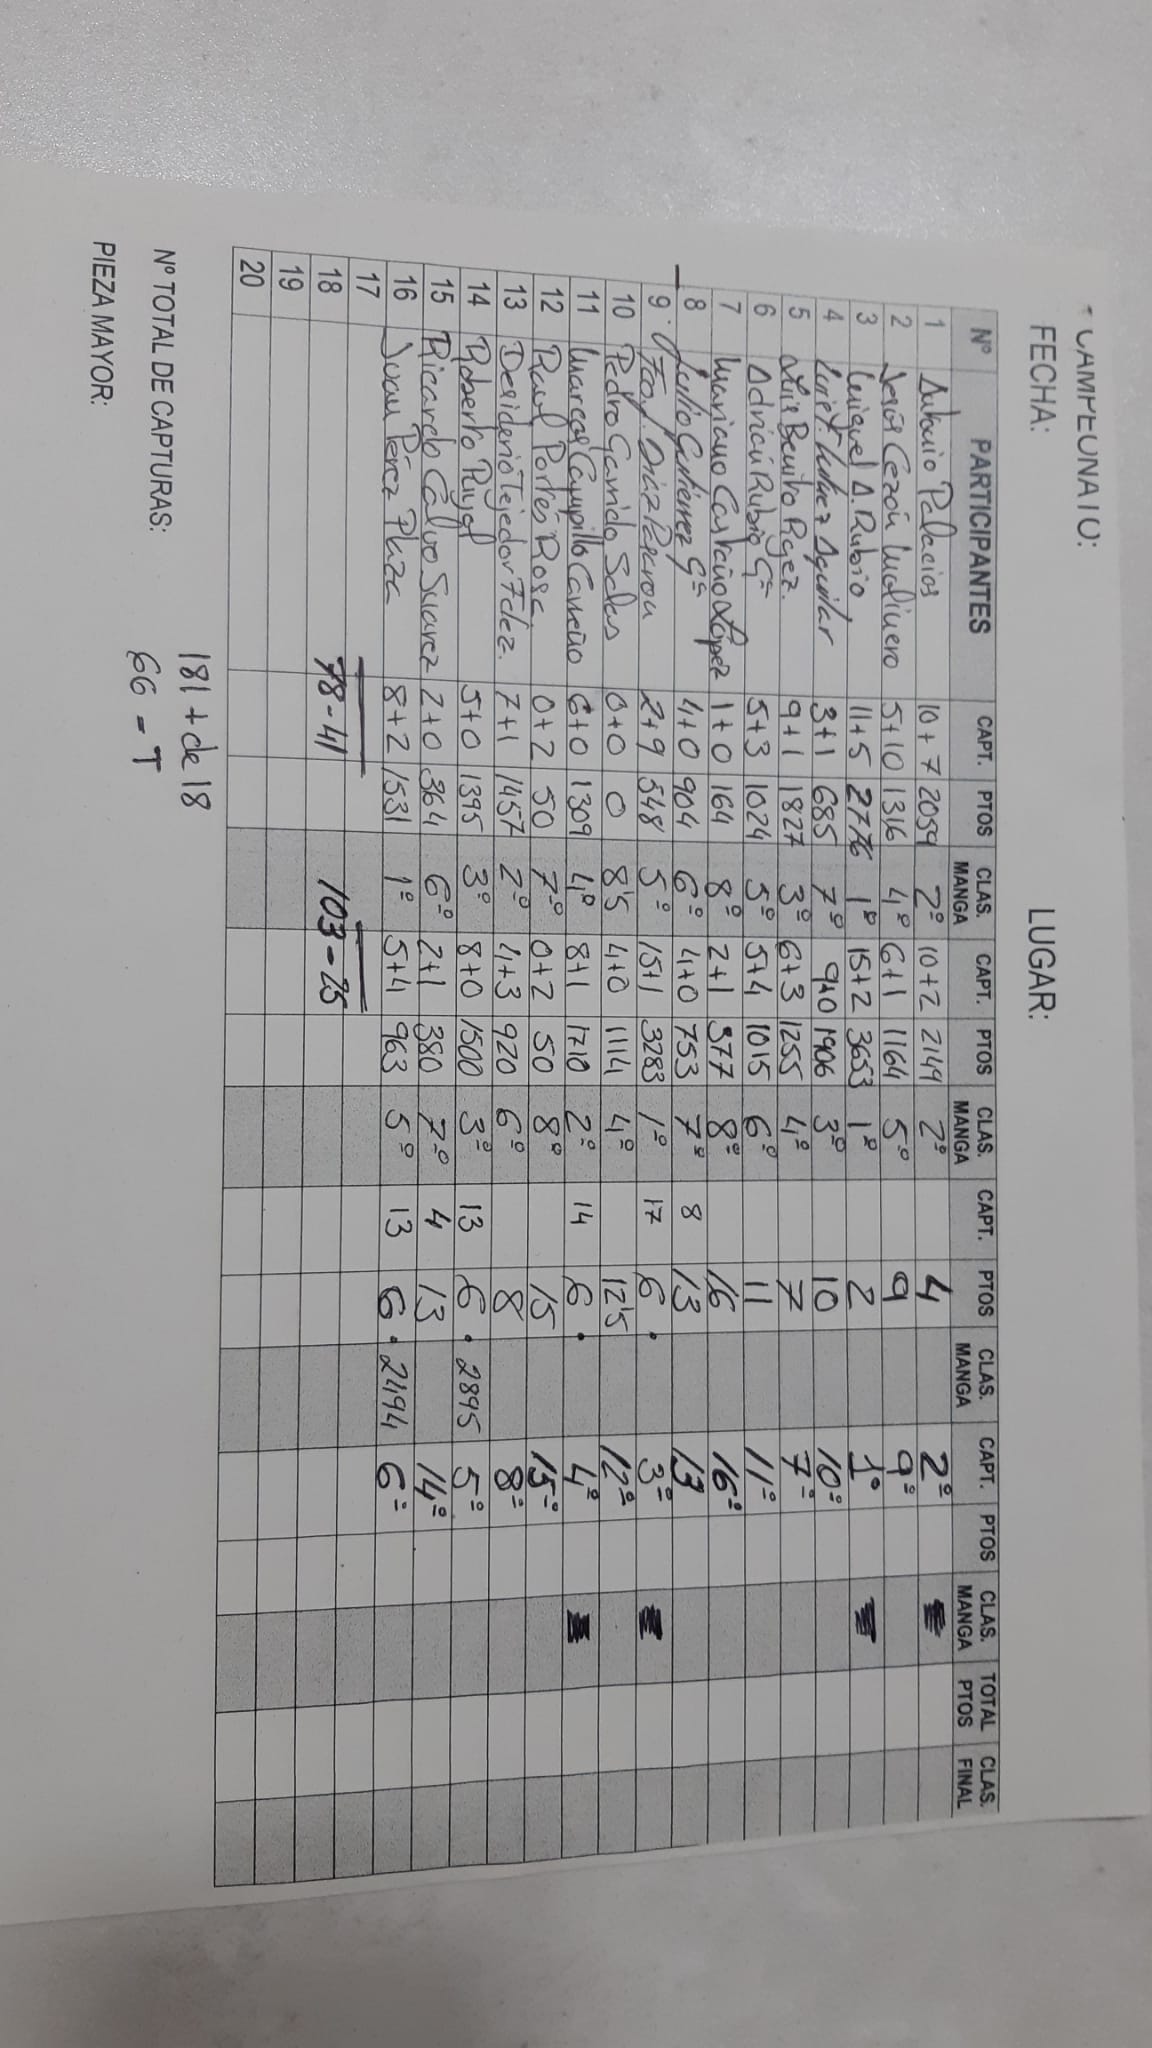 CAMPEONATO:
FECHA: LUGAR:
Nº PARTICIPANTES CAPT. PTOS CLAS. MANGA CAPT. PTOS CLAS. MANGA CAPT. PTOS CLAS. MANGA CAPT. PTOS CLAS. MANGA TOTAL PTOS CLAS. FINAL
1 Antonio Palacios 10+7 2059 2º 10+2 2149 2º 4 2º
2 Jesús Cezón Molinero 5+10 1316 4º 6+1 1164 5º 9 9º
3 Miguel A. Rubio 11+5 2776 1º 15+2 3653 1º 2 1º
4 Aguilar 3+1 685 7º 9+0 1906 3º 10 10º
5 Luis Benito Rguez. 9+1 1827 3º 6+3 1255 4º 7 7º
6 Adrián Rubio Gª 5+3 1024 5º 5+4 1015 6º 11 11º
7 Mariano Castaño López 1+0 164 8º 2+1 377 8º 16 16º
8 Julio Gutiérrez Gª 4+0 904 6º 4+0 753 7º 8 13 13
9 Díaz 2+9 548 5º 15+1 3283 1º 17 6. 3º
10 Pedro Garrido Salas 0+0 0 8'5 4+0 1114 4º 12'5 12º
11 Marcos Campillo Carreño 6+0 1309 4º 8+1 1710 2º 14 6. 4º
12 Raul Portés Rosa 0+2 50 7º 0+2 50 8º 15 15º
13 Desiderio Tejedor Fdez. 7+1 1457 2º 4+3 920 6º 8 8º
14 Roberto 5+0 1395 3º 8+0 1500 3º 13 6. 2895 5º
15 Ricardo Calvo Suarez 2+0 364 6º 2+1 380 7º 4 13 14º
16 Juan Pérez Plaza 8+2 1531 1º 5+4 963 5º 13 6. 2494 6º
17
18 78-41 103-25
19
20
Nº TOTAL DE CAPTURAS: 181 + de 18
66 - T
PIEZA MAYOR: